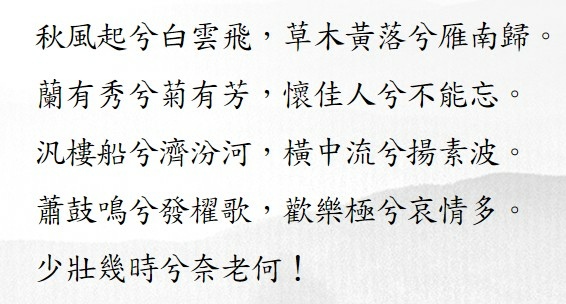 秋風起兮白雲飛，草木黃落兮雁南歸。
蘭有秀兮菊有芳，懷佳人兮不能忘。
汎樓船兮濟汾河，橫中流兮揚素波。
蕭鼓鳴兮發櫂歌，歡樂極兮哀情多。
少壯幾時兮奈老何！